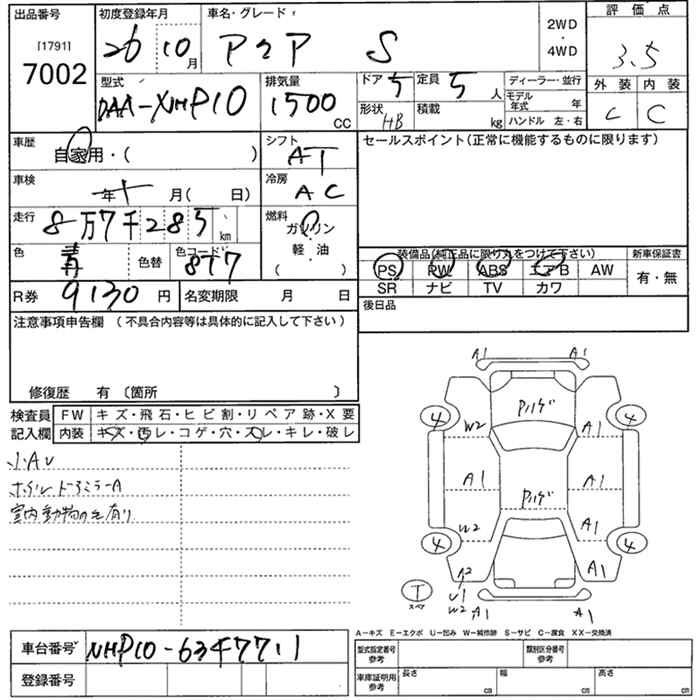 出品番号
[1791]
7002
初度登録年月
26 10 月
車名・グレード
アクア S
2WD
・
4WD
評価点
3.5
型式
DAA-NHP10
排気量
1500 CC
ドア 5
定員 5 人
形状 HB
積載 kg
ディーラー・並行
モデル年式 年
ハンドル 左・右
外装 内装
C C
車歴
自家用・( )
シフト
AT
セールスポイント(正常に機能するものに限ります)
車検
年 月( 日)
冷房
AC
走行
8万7千285 km
燃料
ガソリン
軽・油
( )
色
青
色替
色コード
8T7
装備品(純正品に限り丸をつけて下さい)
新車保証書
PS PW ABS エアB AW
SR ナビ TV カワ
有・無
R券 9130 円
名変期限 月 日
後日品
注意事項申告欄 (不具合内容等は具体的に記入して下さい)
修復歴 有 〔箇所 〕
検査員記入欄
FW キズ・飛石・ヒビ割・リペア跡・X要
内装 キズ・汚レ・コゲ・穴・スレ・キレ・破レ
小AU
ホイル ドアミラーA
室内動物の毛有り
A1 A1
Pハゲ
4 4
W2 A1
A1 A1
Pハゲ
W2 A1
4 4
A2 A1
U1
W2 A1 A1
T
スペア
A-キズ E-エクボ U-凹み W-補修跡 S-サビ C-腐食 XX-交換済
車台番号 NHP10-6347711
登録番号
型式指定番号 参考
類別区分番号 参考
車庫証明用 参考
長さ cm
幅 cm
高さ cm